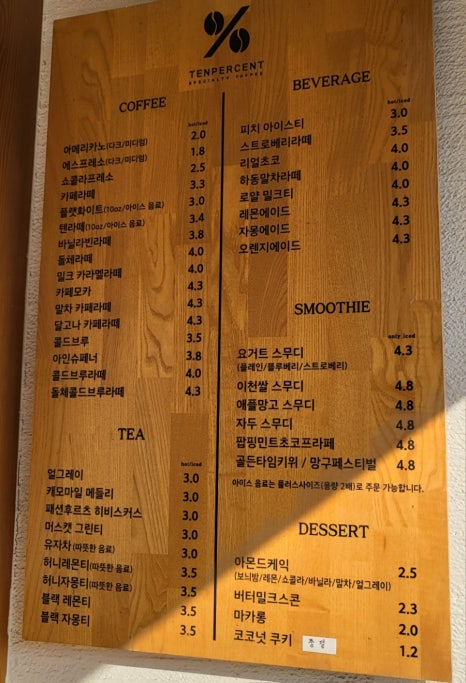 %
TENPERCENT
SPECIALTY COFFEE
COFFEE
hot/iced
아메리카노(다크/미디엄) 2.0
에스프레소(다크/미디엄) 1.8
쇼콜라프레소 2.5
카페라떼 3.3
플랫화이트(10oz/아이스 음료) 3.0
텐라떼(10oz/아이스 음료) 3.4
바닐라빈라떼 3.8
돌체라떼 4.0
밀크 카라멜라떼 4.0
카페모카 4.3
말차 카페라떼 4.3
달고나 카페라떼 4.3
콜드브루 3.5
아인슈페너 3.8
콜드브루라떼 4.0
돌체콜드브루라떼 4.3
TEA
hot/iced
얼그레이 3.0
캐모마일 메들리 3.0
패션후르츠 히비스커스 3.0
머스캣 그린티 3.0
유자차(따뜻한 음료) 3.0
허니레몬티(따뜻한 음료) 3.5
허니자몽티(따뜻한 음료) 3.5
블랙 레몬티 3.5
블랙 자몽티 3.5
BEVERAGE
hot/iced
피치 아이스티 3.0
스트로베리라떼 3.5
리얼초코 4.0
하동말차라떼 4.0
로얄 밀크티 4.0
레몬에이드 4.3
자몽에이드 4.3
오렌지에이드 4.3
SMOOTHIE
only iced
요거트 스무디 4.3
(플레인/블루베리/스트로베리)
이천쌀 스무디 4.8
애플망고 스무디 4.8
자두 스무디 4.8
팝핑민트초코프라페 4.8
골든타임키위 / 망구페스티벌 4.8
아이스 음료는 플러스사이즈(용량 2배)로 주문 가능합니다.
DESSERT
아몬드케익 2.5
(보늬밤/레몬/쇼콜라/바닐라/말차/얼그레이)
버터밀크스콘 2.3
마카롱 2.0
코코넛 쿠키 품절 1.2